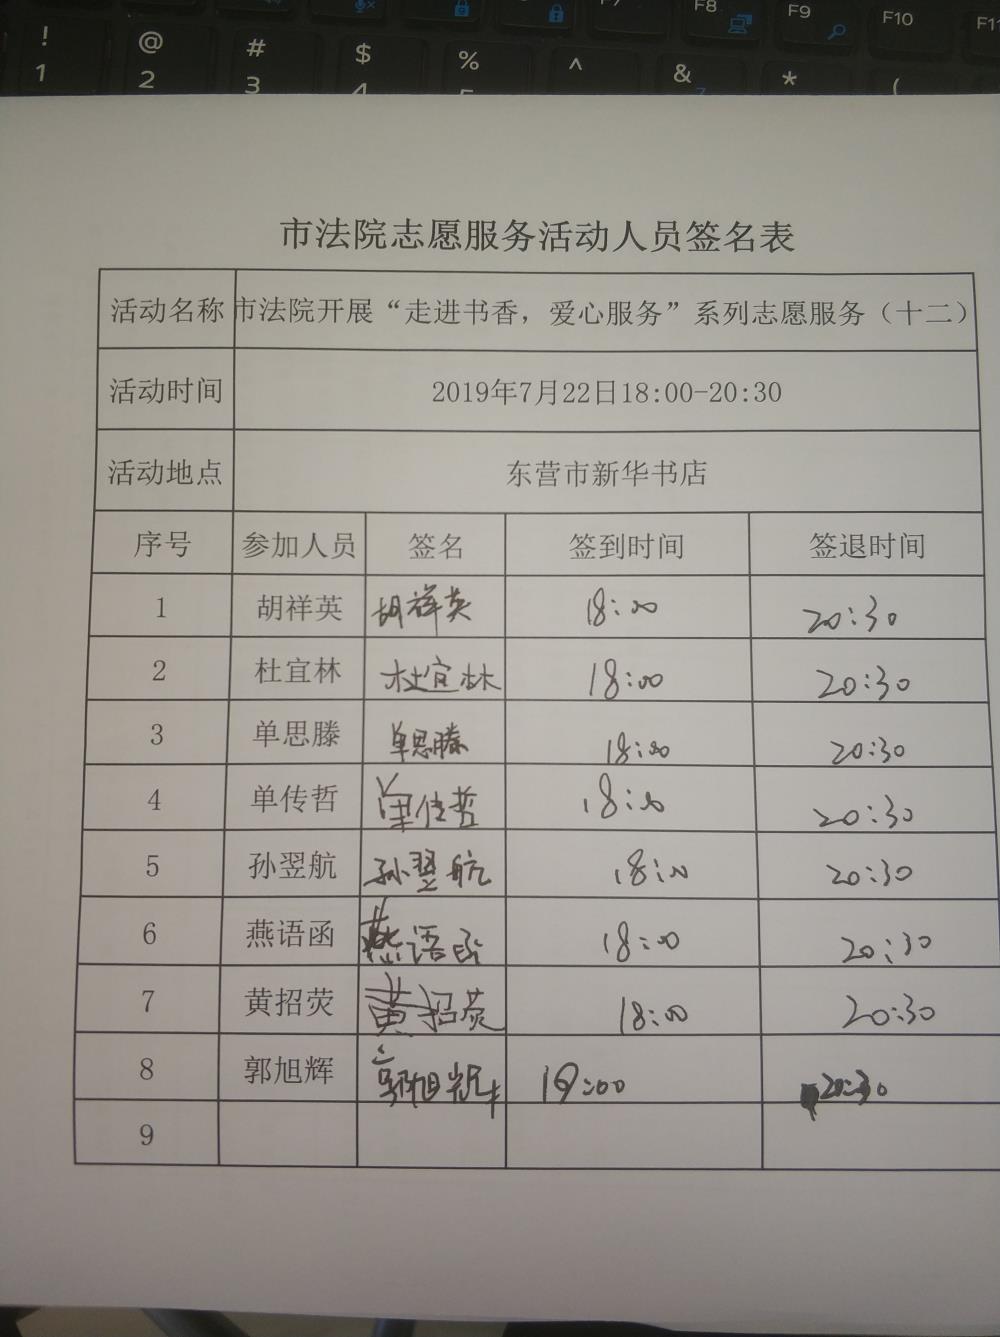 F8 F9 F10
! @ # $ % ^ & * (
1 2 3 4 5 7
市法院志愿服务活动人员签名表
活动名称 市法院开展“走进书香，爱心服务”系列志愿服务（十二）
活动时间 2019年7月22日18:00-20:30
活动地点 东营市新华书店
序号 参加人员 签名 签到时间 签退时间
1 胡祥英 胡祥英 18:00 20:30
2 杜宜林 杜宜林 18:00 20:30
3 单思滕 单思滕 18:00 20:30
4 单传哲 单传哲 18:00 20:30
5 孙翌航 孙翌航 18:00 20:30
6 燕语函 燕语函 18:00 20:30
7 黄招荧 黄招荧 18:00 20:30
8 郭旭辉 郭旭辉 18:00 20:30
9